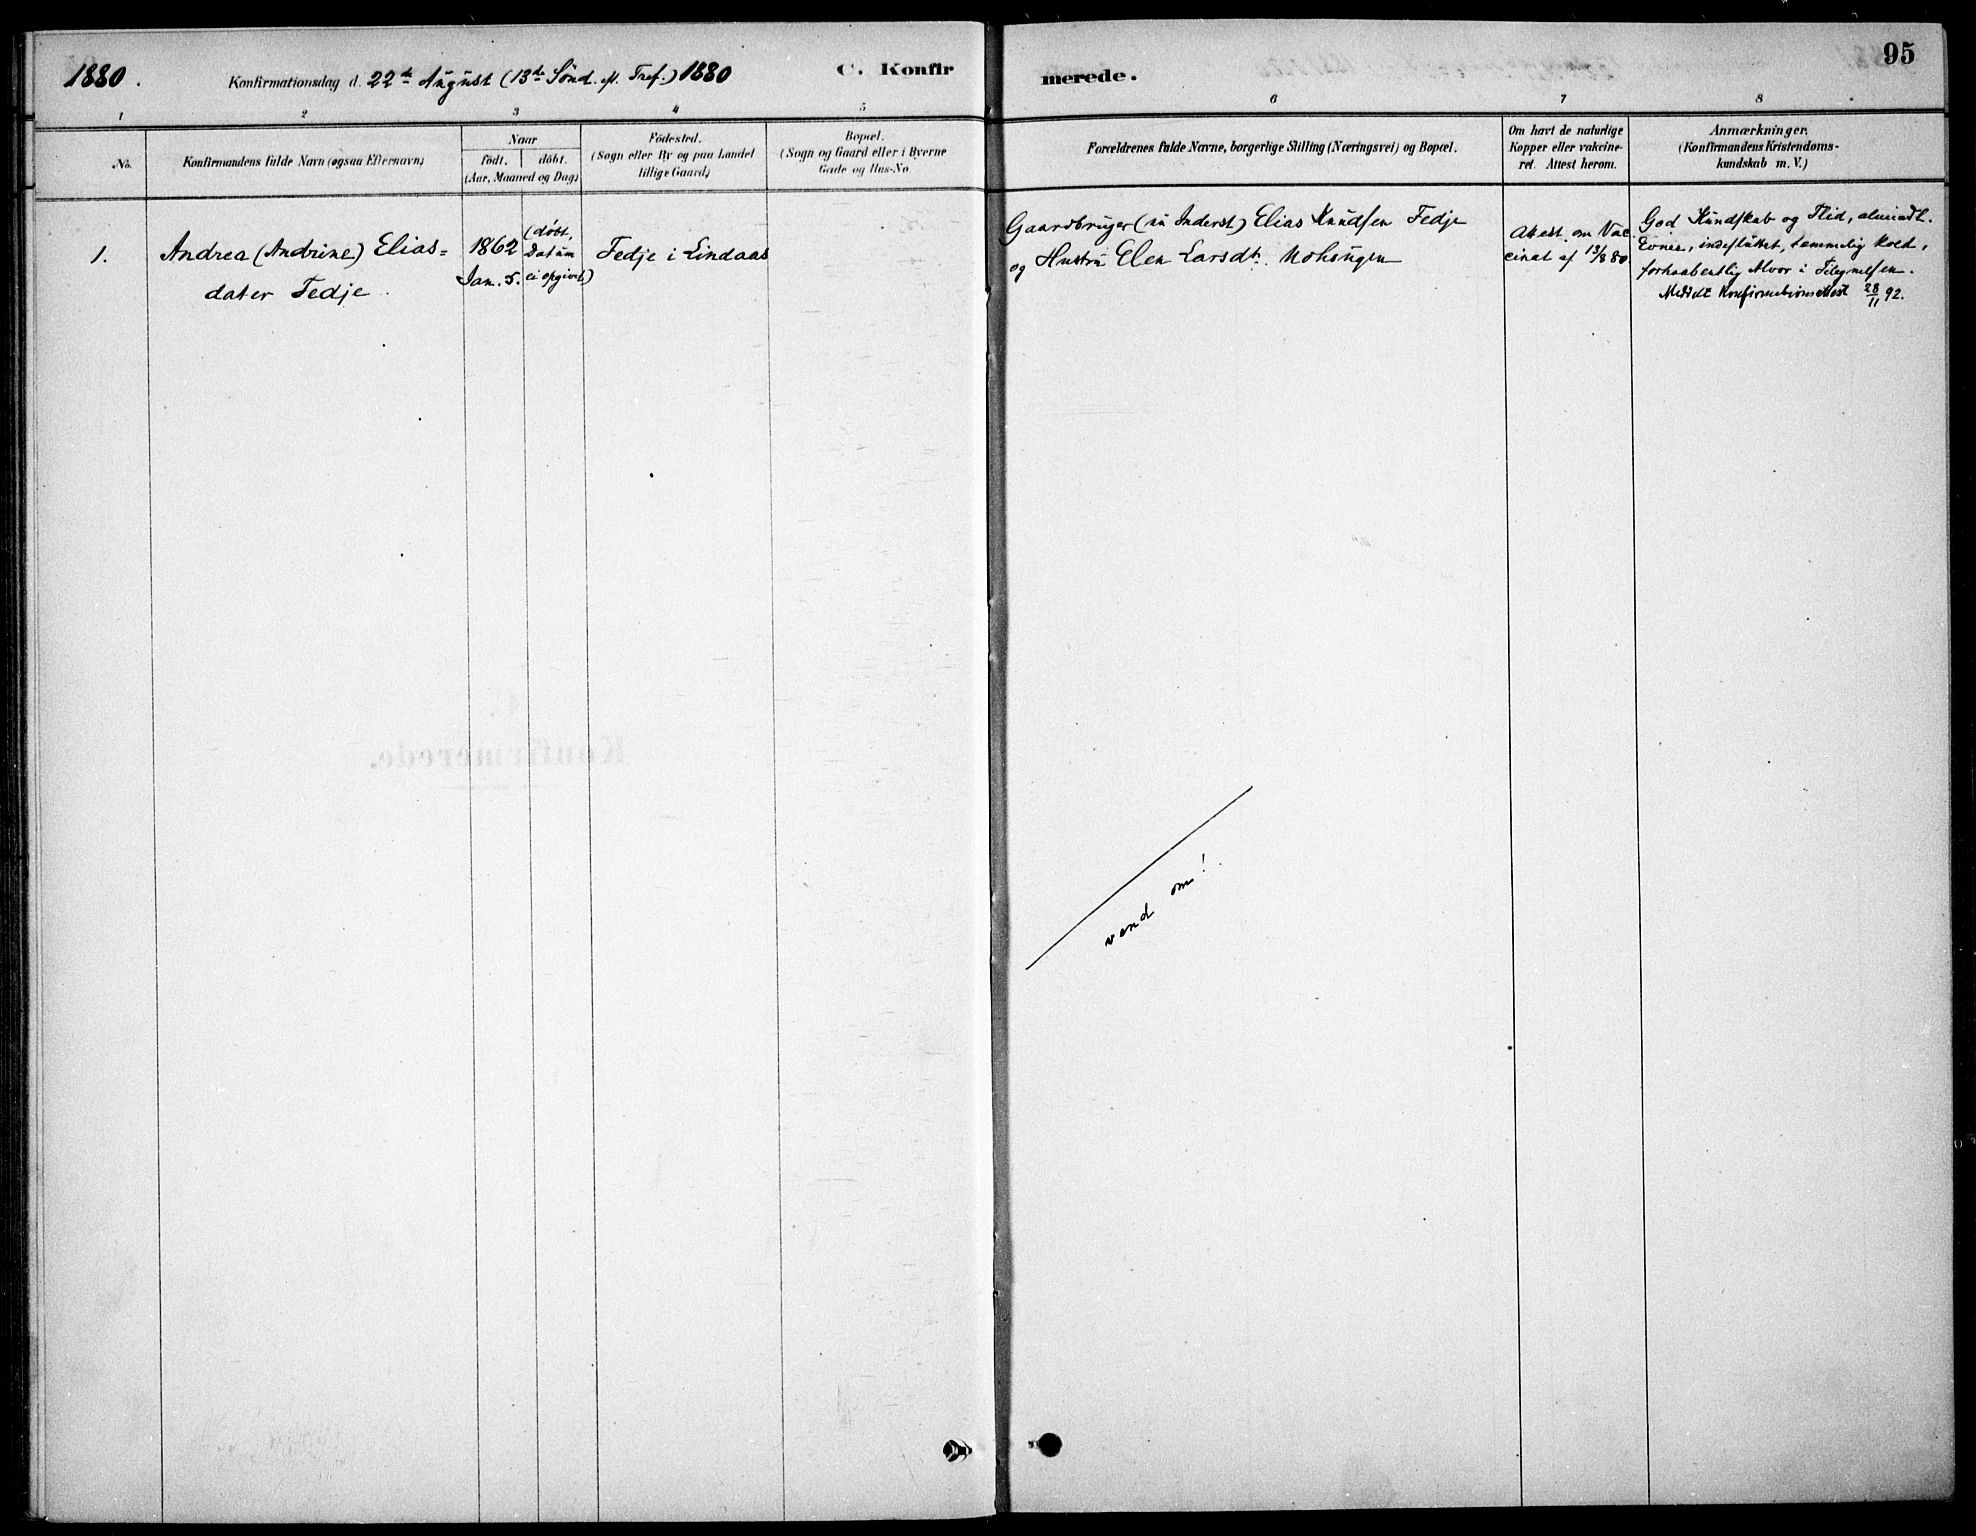 1880. Konfirmationsdag d. 22de August (13de Sønd. e. Tref.) 1880 C. Konfirmerede. 95
1 2 3 4 5 6 7 8
No.
Konfirmandens fulde Navn (ogsaa Efternavn)
Naar
födt. | döbt.
(Aar, Maaned og Dag)
Födested.
(Sogn eller By og paa Landet
tillige Gaard)
Bopæl.
(Sogn og Gaard eller i Byerne
Gade og Hus-No
Forældrenes fulde Navne, borgerlige Stilling (Næringsvei) og Bopæl.
Om havt de naturlige
Kopper eller vakcine-
ret. Attest herom.
Anmærkninger.
(Konfirmandens Kristendoms-
kundskab m. V.)
1.
Andrea (Andrine) Elias=
dater Fedje
1862
Jan. 5.
(döbt.
Datum
ei opgivet)
Fedje i Lindaas
Gaardbruger (nu Inderst) Elias Knudsen Fedje
og Hustru Elen Larsdt.
Attest om Vac
cinat af 13/8 80
God Kundskab og Flid, almindl.
Evner, indesluttet, temmelig kold,
forhaabentlig Alvor i Tilegnelsen.
Meddelt Konfirmationsattest 28/11 92.
vend om!